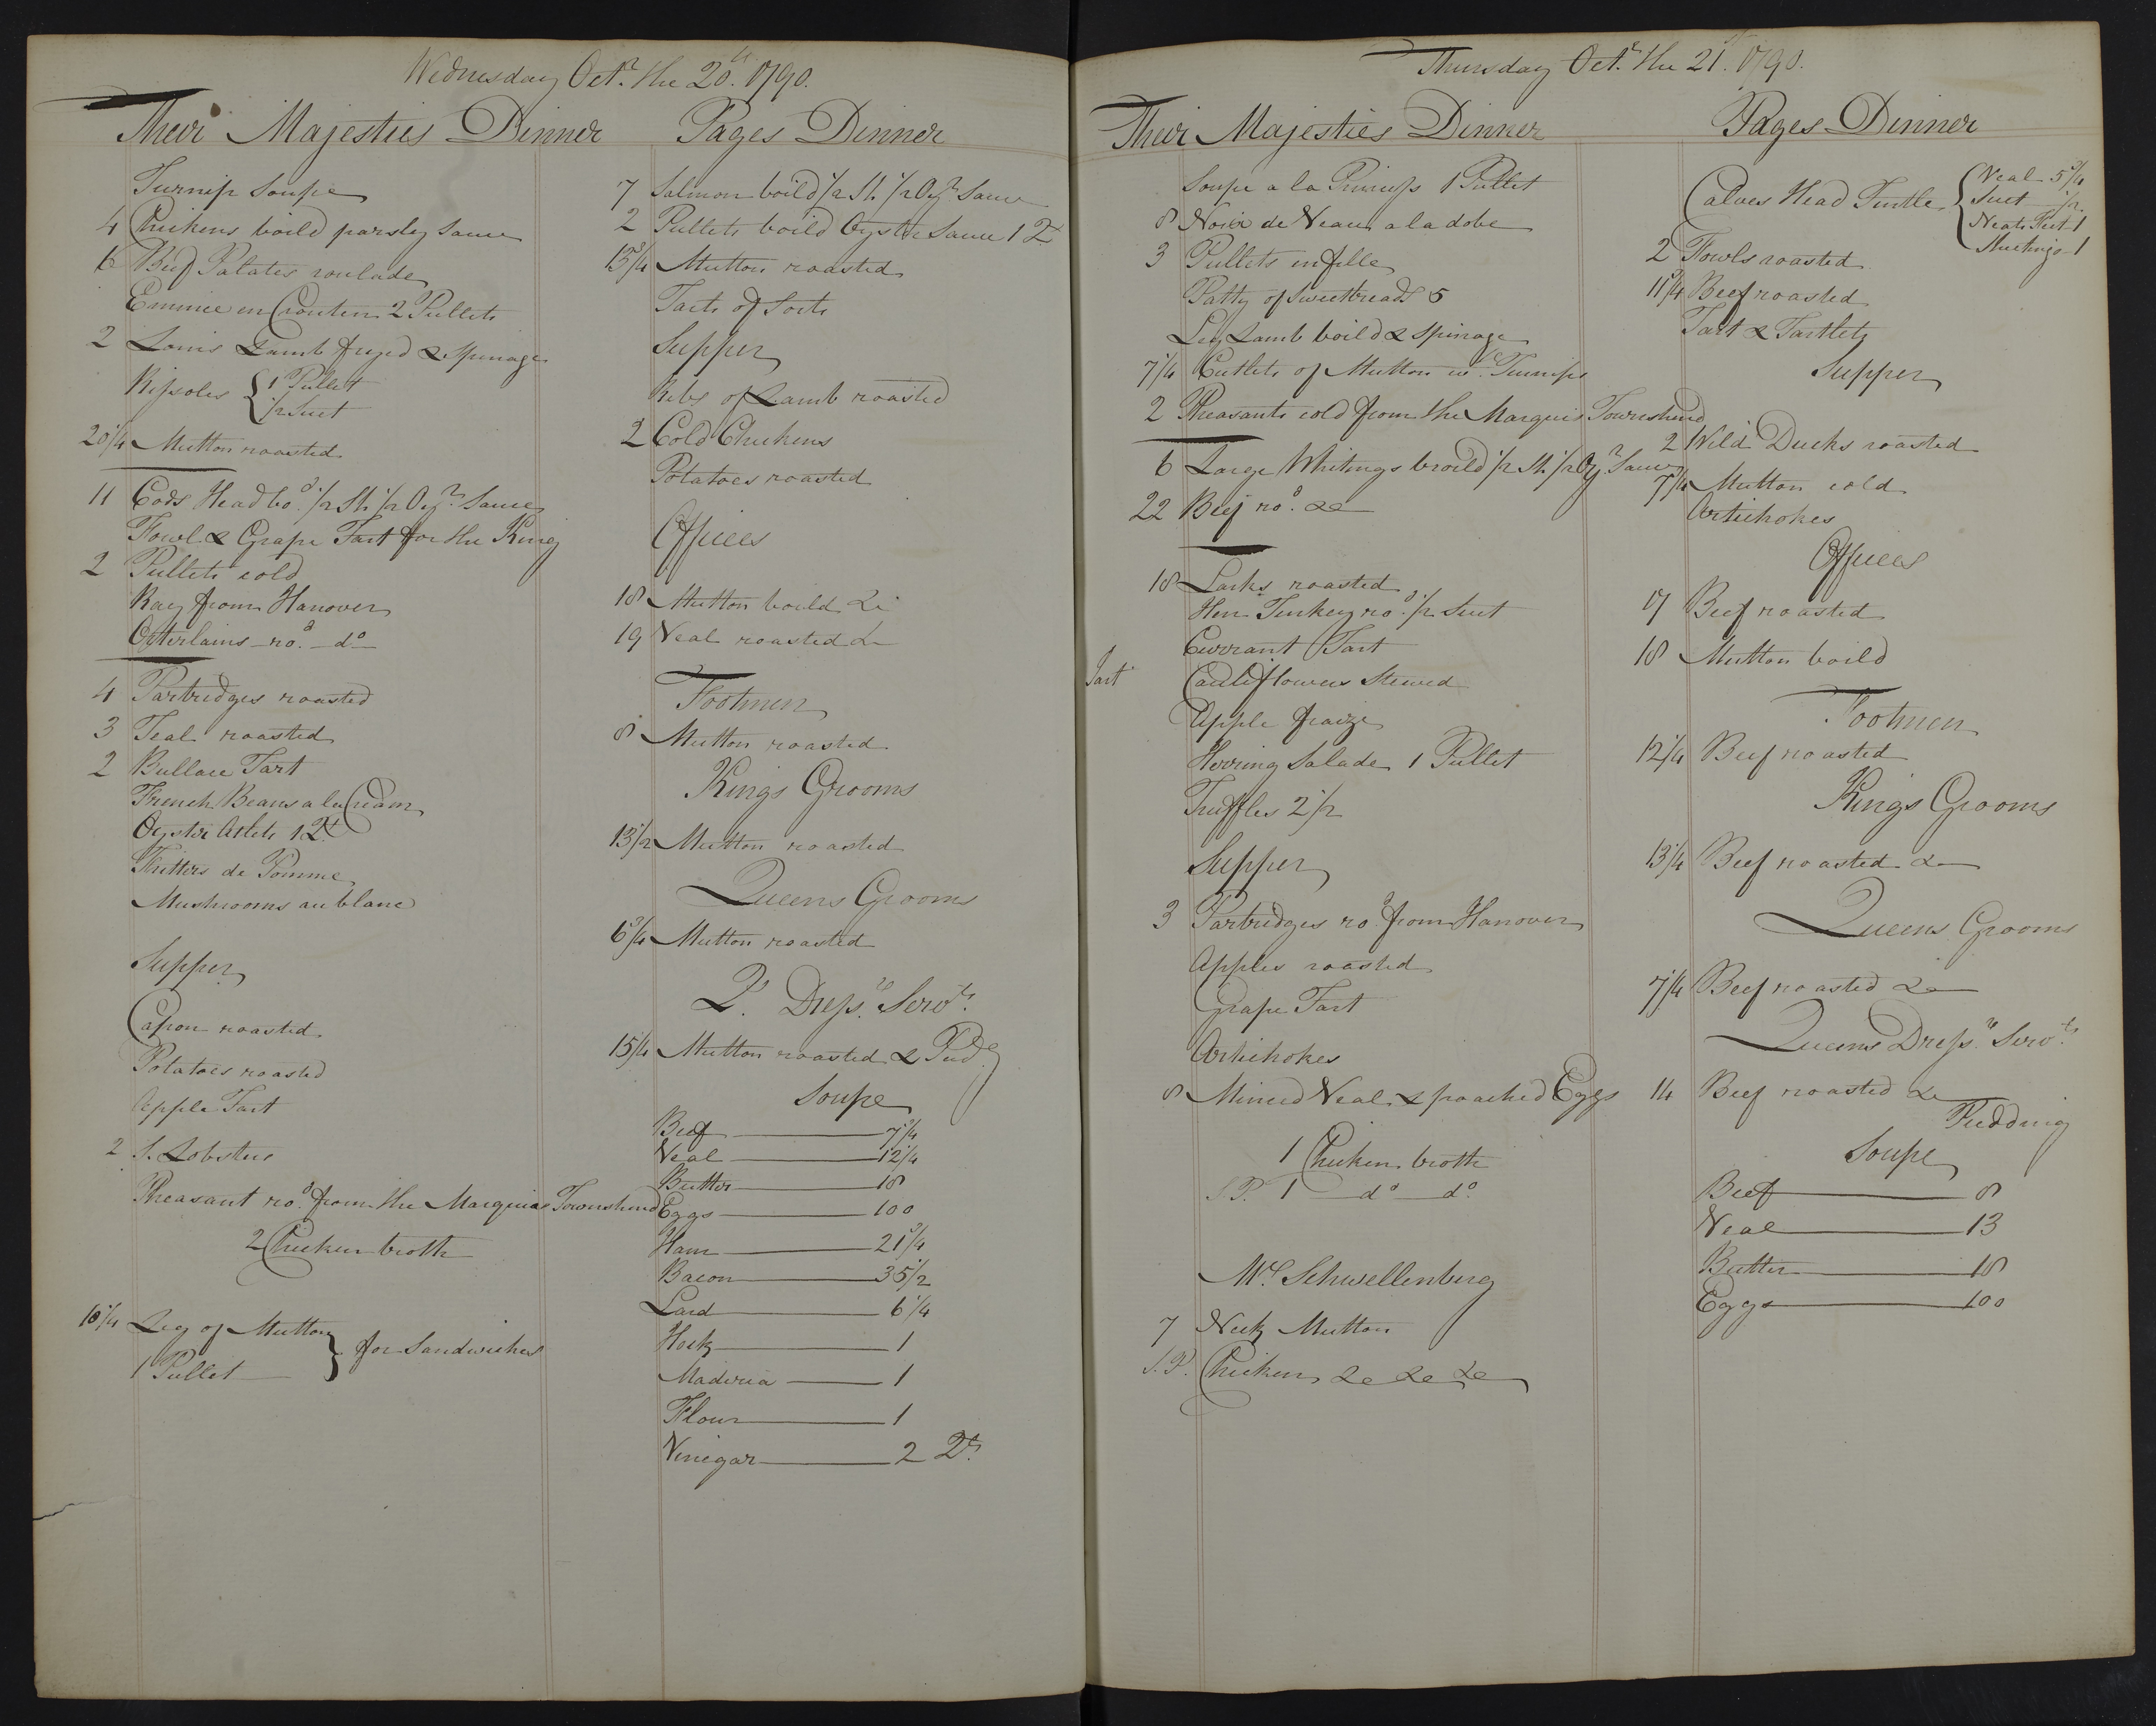 Wednesday Octr. the 20th. 1790.
Their Majesties Dinner
Turnip Soupe
4 Chickens boild parsley Sauce
6 Beef Palates roulade
Emince en Crouten 2 Pullets
2 Loins Lamb fryed & Spinage
Rissoles { 1 Pullet
1/2 Suet
20 1/4 Mutton roasted
11 Cods Head bod. 1/2 St. 1/2 Oyr. Sauce
Fowl & Grape Tart for the King
2 Pullets cold
Ray from Hanover
Orterlains rod. do
4 Partridges roasted
3 Teal roasted
2 Bullace Tart
French Beans a la Cream
Oyster Atlets 1 Qt.
Fritters de Pomme
Mushrooms au blanc
Supper
Capon roasted
Potatoes roasted
Apple Tart
2 S. Lobster
Pheasant rod. from the Marquis Townshend
2 Chicken broth
10 1/4 Leg of Mutton } for Sandwiches
1 Pullet
Pages Dinner
7 Salmon boild 1/2 St. 1/2 Oyr. Sauce
2 Pullets boild Oyster Sauce 1 Qt
13 3/4 Mutton roasted
Tarts of Sorts
Supper
Ribs of Lamb roasted
2 Cold Chickens
Potatoes roasted
Offices
18 Mutton boild &c
19 Veal roasted &c
Footmen
8 Mutton roasted
Kings Grooms
13 1/2 Mutton roasted
Queens Grooms
6 3/4 Mutton roasted
Qs. Dressrs. Servts.
15 1/4 Mutton roasted & Pudg.
Soupe
Beef 7 3/4
Veal 12 1/4
Butter 18
Eggs 100
Ham 21 3/4
Bacon 35 1/2
Lard 6 1/4
Hock 1
Maderia 1
Flour 1
Vinegar 2 Qts.
Thursday Octr. the 21st. 1790.
Their Majesties Dinner
Soupe a la Princess 1 Pullet
8 Noix de Veau a la dobe
3 Pullets en fille
Patty of Sweetbreads 5
Leg Lamb boild & Spinage
7 1/4 Cutlets of Mutton w. Turnips
2 Pheasants cold from the Marquis Townshend
6 Large Whitings broild 1/2 St. 1/2 Oyr. Sauce
22 Beef rod. &c
18 Larks roasted
Hen Turkey rod. 1/2 Suet
Currant Tart
Tart Cauliflowers Stewed
Apple fraize
Herring Salade 1 Pullet
Truffles 2 1/2
Supper
3 Partridges rod. from Hanover
Apples roasted
Grape Tart
Artichokes
8 Minced Veal & poached Eggs
1 Chicken broth
S.P. 1 do do.
Mrs. Schwellenberg
7 Neck Mutton
S.P. Chicken &c &c &c
Pages Dinner
Calves Head Turtle { Veal 5 3/4
Suet 1/2
Neats Feet 1
2 Fowls roasted
11 3/4 Beef roasted
Tart & Tartlets
Supper
2 Wild Ducks roasted
7 1/4 Mutton cold
Artichokes
Offices
17 Beef roasted
18 Mutton boild
Footmen
12 1/4 Beef roasted
Kings Grooms
13 1/4 Beef roasted &c
Queens Grooms
7 1/4 Beef roasted &c
Queens Dressrs. Servts.
14 Beef roasted &c
Pudding
Soupe
Beef 8
Veal 13
Butter 18
Eggs 100